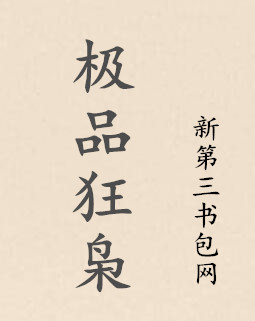 极品狂枭
新第三书包网